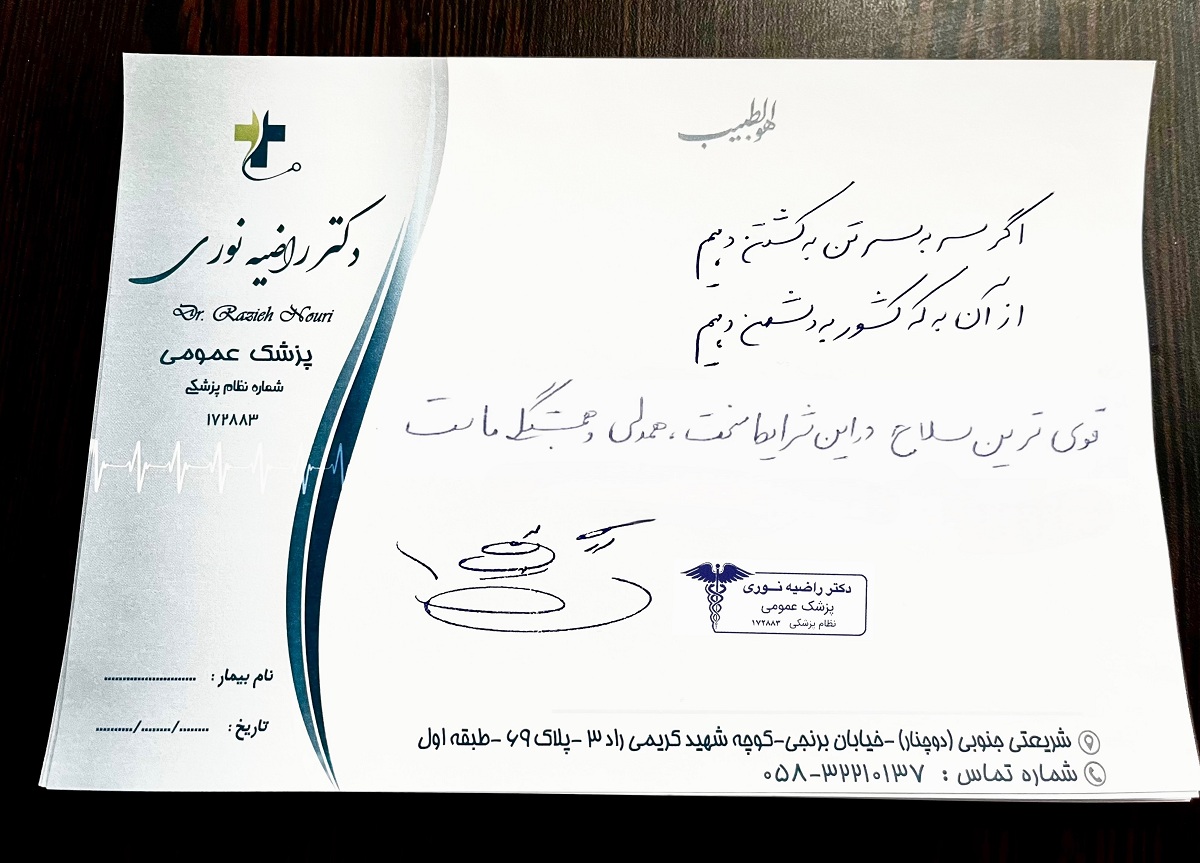 هوالطبیب
دکتر راضیه نوری
Dr. Razieh Nouri
پزشک عمومی
شماره نظام پزشکی
۱۷۲۸۸۳
اگر سر به سر تن به کشتن دهیم
از آن به که کشور به دشمن دهیم
قوی ترین سلاح در این شرایط سخت، همدلی و همبستگی ماست
دکتر راضیه نوری
پزشک عمومی
نظام پزشکی ۱۷۲۸۸۳
نام بیمار : ........................
تاریخ : ......../......../..........
شریعتی جنوبی (دوچنار) -خیابان برنجی-کوچه شهید کریمی راد ۳ -پلاک ۶۹ -طبقه اول
شماره تماس : ۰۵۸-۳۲۲۱۰۱۳۷